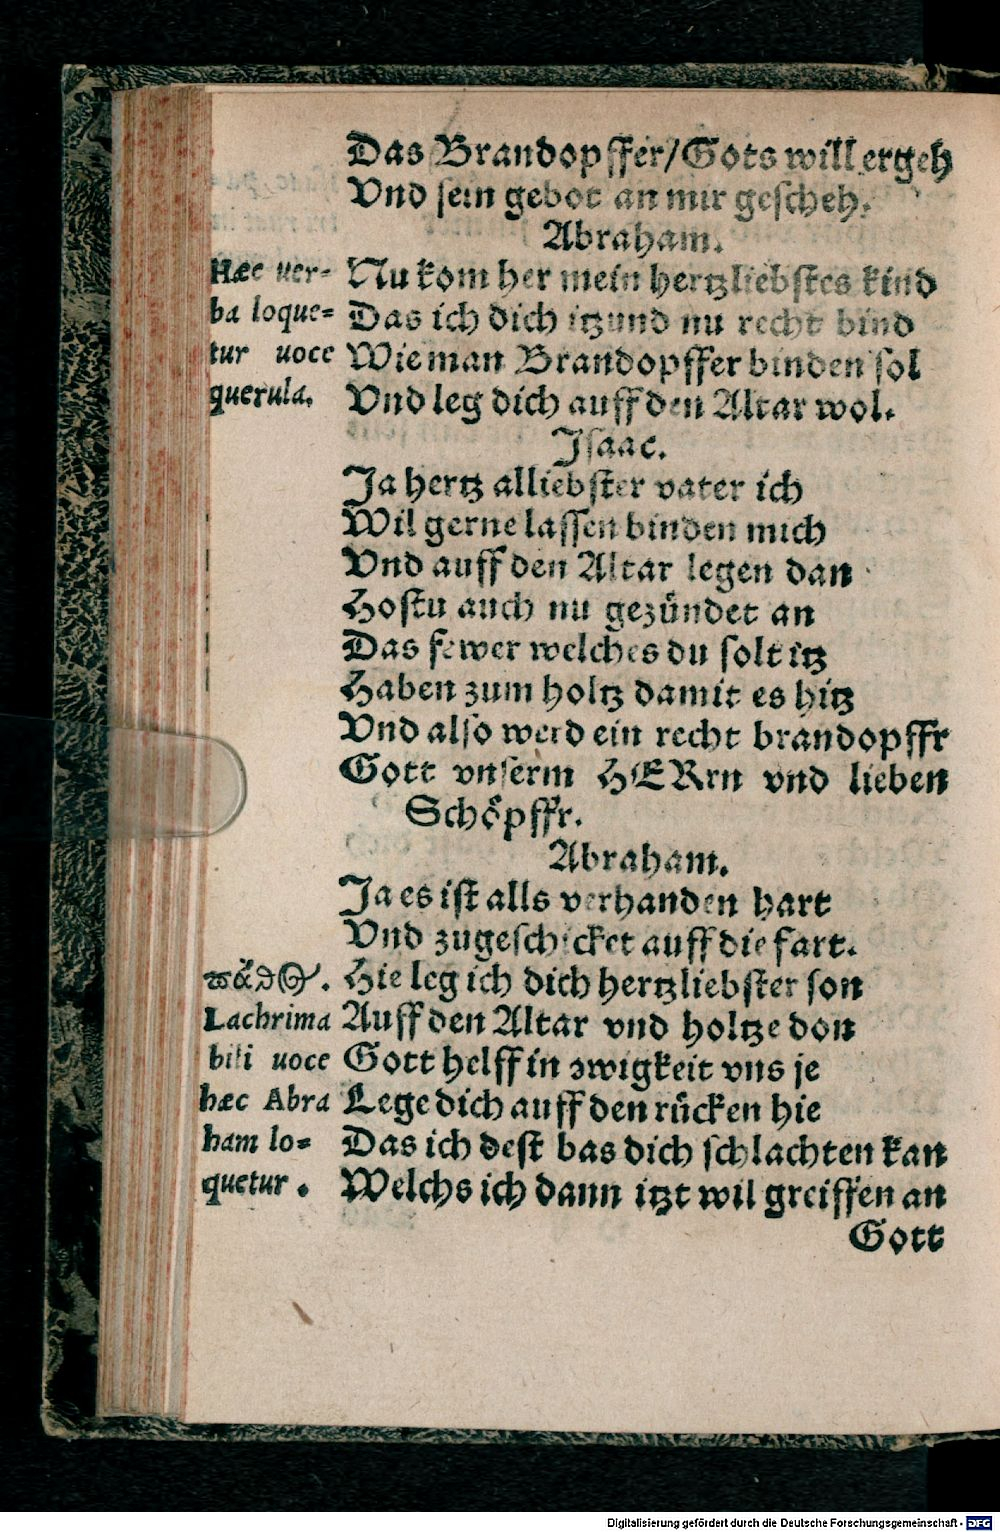 Das Brandopffer/Gots will ergeh
Vnd sein gebot an mir gescheh.
Abraham.
Hæc uer-
ba loque-
tur uoce
querula.
Nu kom her mein hertzliebstes kind
Das ich dich itzund nu recht bind
Wie man Brandopffer binden sol
Vnd leg dich auff den Altar wol.
Isaac.
Ja hertz alliebster vater ich
Wil gerne lassen binden mich
Vnd auff den Altar legen dan
Hostu auch nu gezündet an
Das fewer welches du solt itz
Haben zum holtz damit es hitz
Vnd also werd ein recht brandopffr
Gott vnserm HERrn vnd lieben
Schöpffr.
Abraham.
Ja es ist alls verhanden hart
Vnd zugeschicket auff die fart.
Lachrima
bili uoce
hæc Abra
ham lo-
quetur.
Hie leg ich dich hertzliebster son
Auff den Altar vnd holtze don
Gott helff in ewigkeit vns je
Lege dich auff den rücken hie
Das ich dest bas dich schlachten kan
Welchs ich dann itzt wil greiffen an
Gott
Digitalisierung gefördert durch die Deutsche Forschungsgemeinschaft - DFG